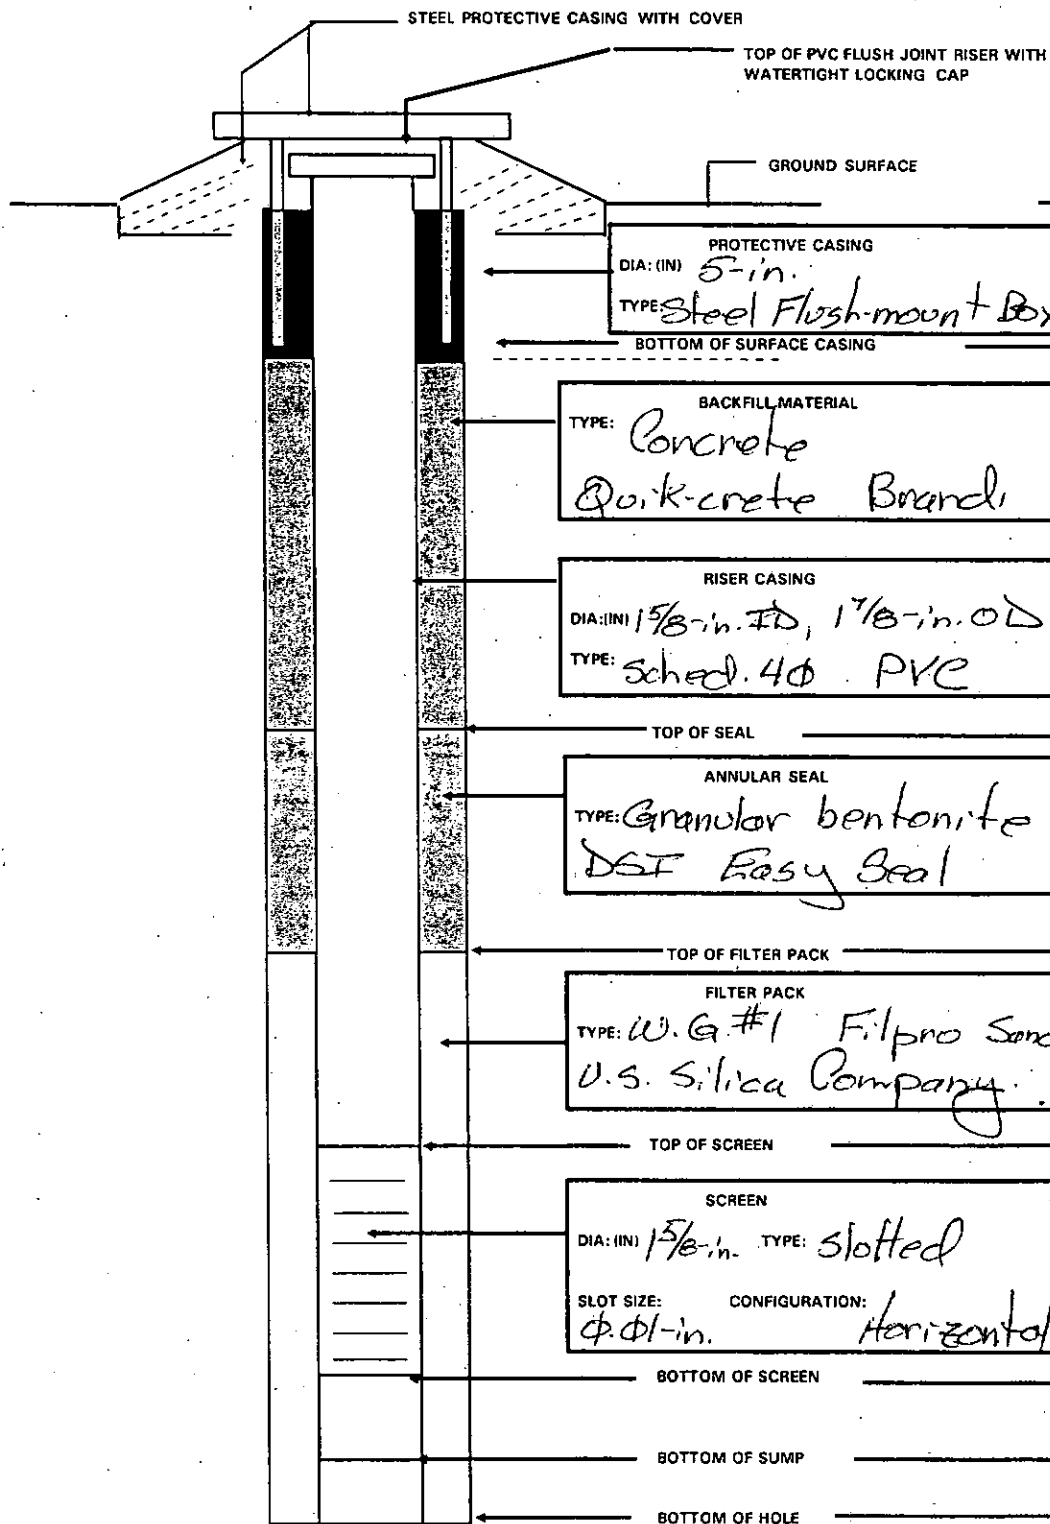 STEEL PROTECTIVE CASING WITH COVER
TOP OF PVC FLUSH JOINT RISER WITH
WATERTIGHT LOCKING CAP
GROUND SURFACE
PROTECTIVE CASING
DIA: (IN) 5-in.
TYPE: Steel Flush-mount Box
BOTTOM OF SURFACE CASING
BACKFILL MATERIAL
TYPE: Concrete
Quik-crete Brand
RISER CASING
DIA:(IN) 1 5/8-in. ID, 1 7/8-in. OD
TYPE: Sched. 40 PVC
TOP OF SEAL
ANNULAR SEAL
TYPE: Granular bentonite
DSI Easy Seal
TOP OF FILTER PACK
FILTER PACK
TYPE: W.G. #1 Filpro Sand
U.S. Silica Company.
TOP OF SCREEN
SCREEN
DIA: (IN) 1 5/8-in. TYPE: Slotted
SLOT SIZE: CONFIGURATION:
0.01-in. Horizontal
BOTTOM OF SCREEN
BOTTOM OF SUMP
BOTTOM OF HOLE